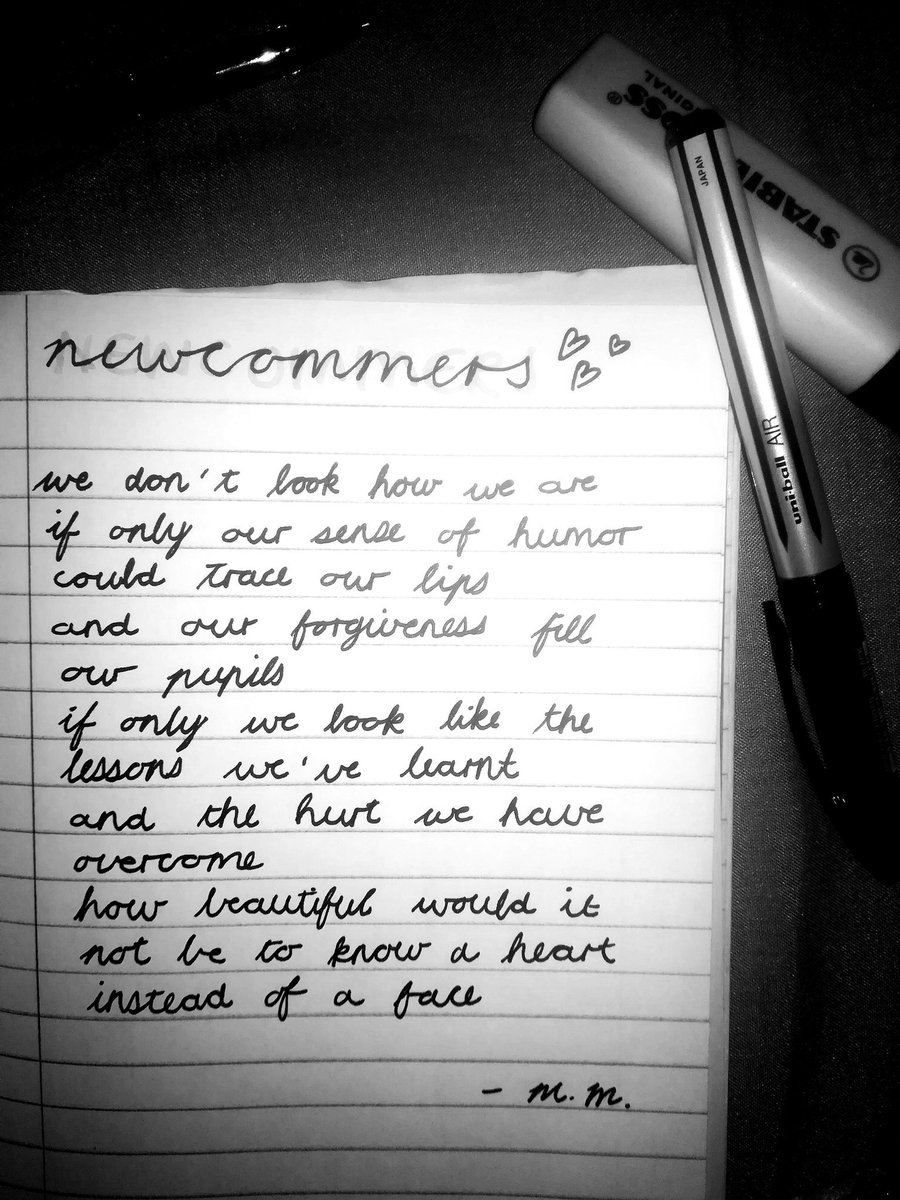 BOSS
ORIGINAL
STABILO
JAPAN
uni-ball AIR
newcommers
we don't look how we are
if only our sense of humor
could trace our lips
and our forgiveness fill
our pupils
if only we look like the
lessons we've learnt
and the hurt we have
overcome
how beautiful would it
not be to know a heart
instead of a face
- m.m.